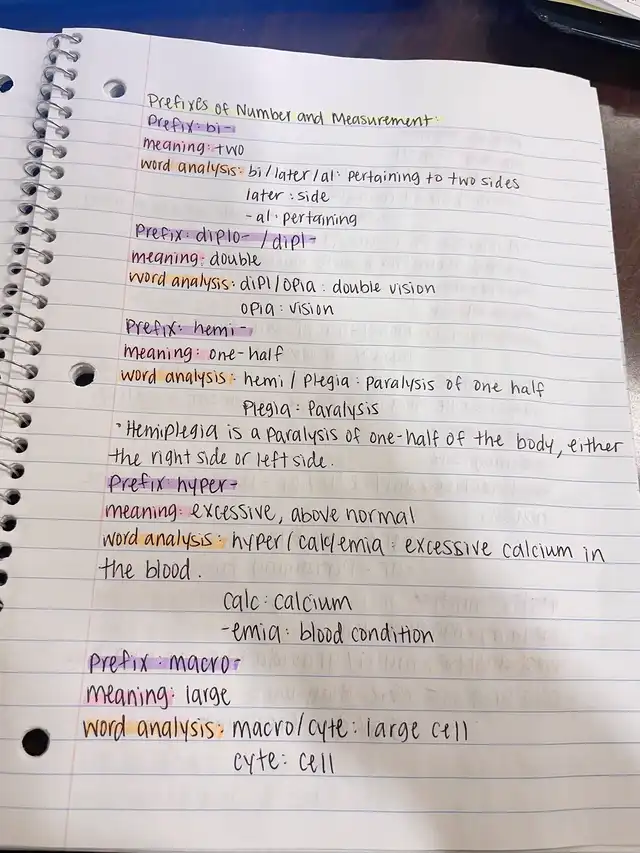 Prefixes of Number and Measurement:
Prefix: bi-
meaning: two
word analysis: bi/later/al: pertaining to two sides
later: side
-al: pertaining
Prefix: diplo- /dipl-
meaning: double
word analysis: dipl/opia: double vision
opia: vision
Prefix: hemi-
meaning: one-half
word analysis: hemi/plegia: paralysis of one half
plegia: Paralysis
·Hemiplegia is a paralysis of one-half of the body, either
the right side or left side.
Prefix: hyper-
meaning: excessive, above normal
word analysis: hyper/calc/emia: excessive calcium in
the blood.
calc: calcium
-emia: blood condition
prefix: macro-
meaning: large
word analysis: macro/cyte: large cell
cyte: cell